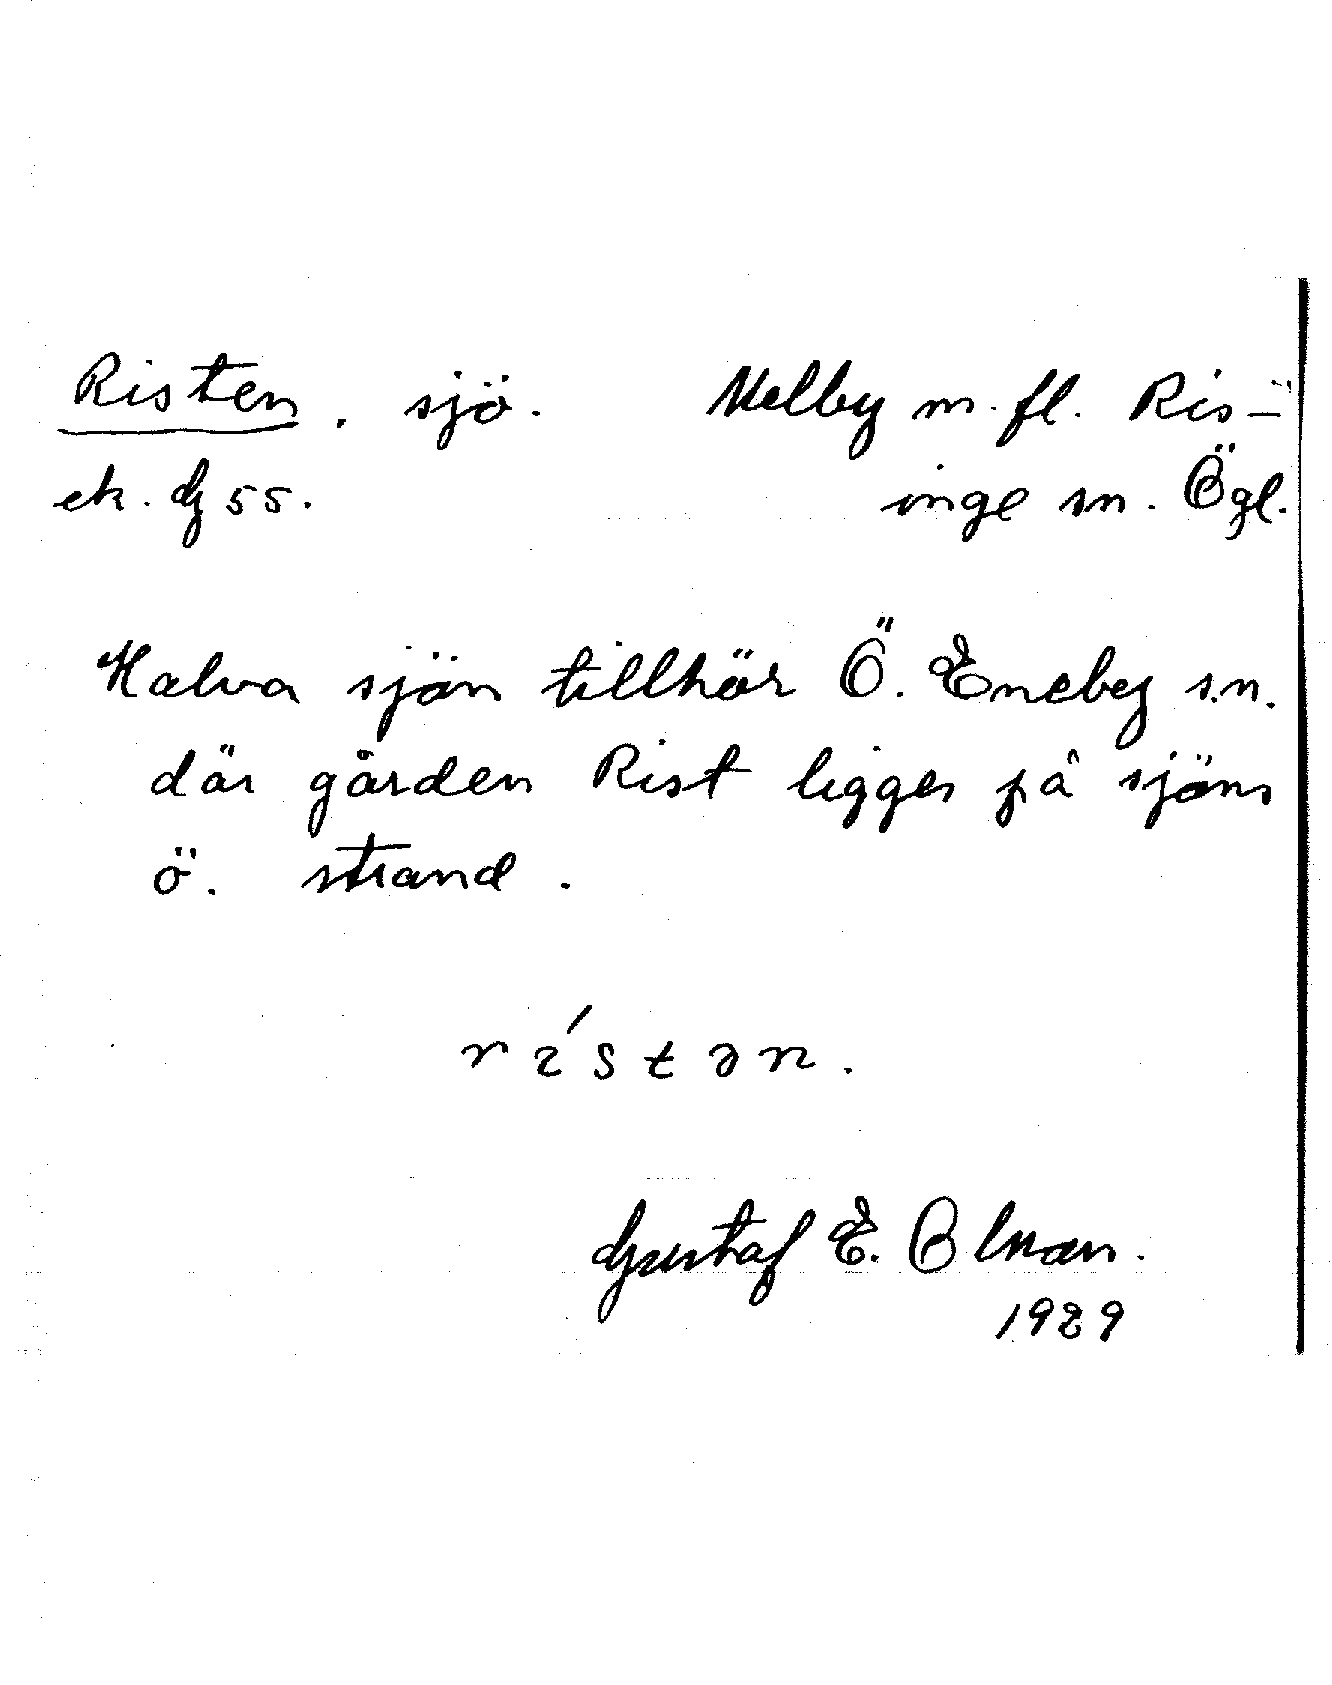 Risten. sjö. Melby m. fl. Ris-
ek. G 55. inge sn. Ögl.
Halva sjön tillhör Ö. Eneby s.n.
där gården Rist ligger på sjöns
ö. strand.
rístən.
Gustaf E.
1929